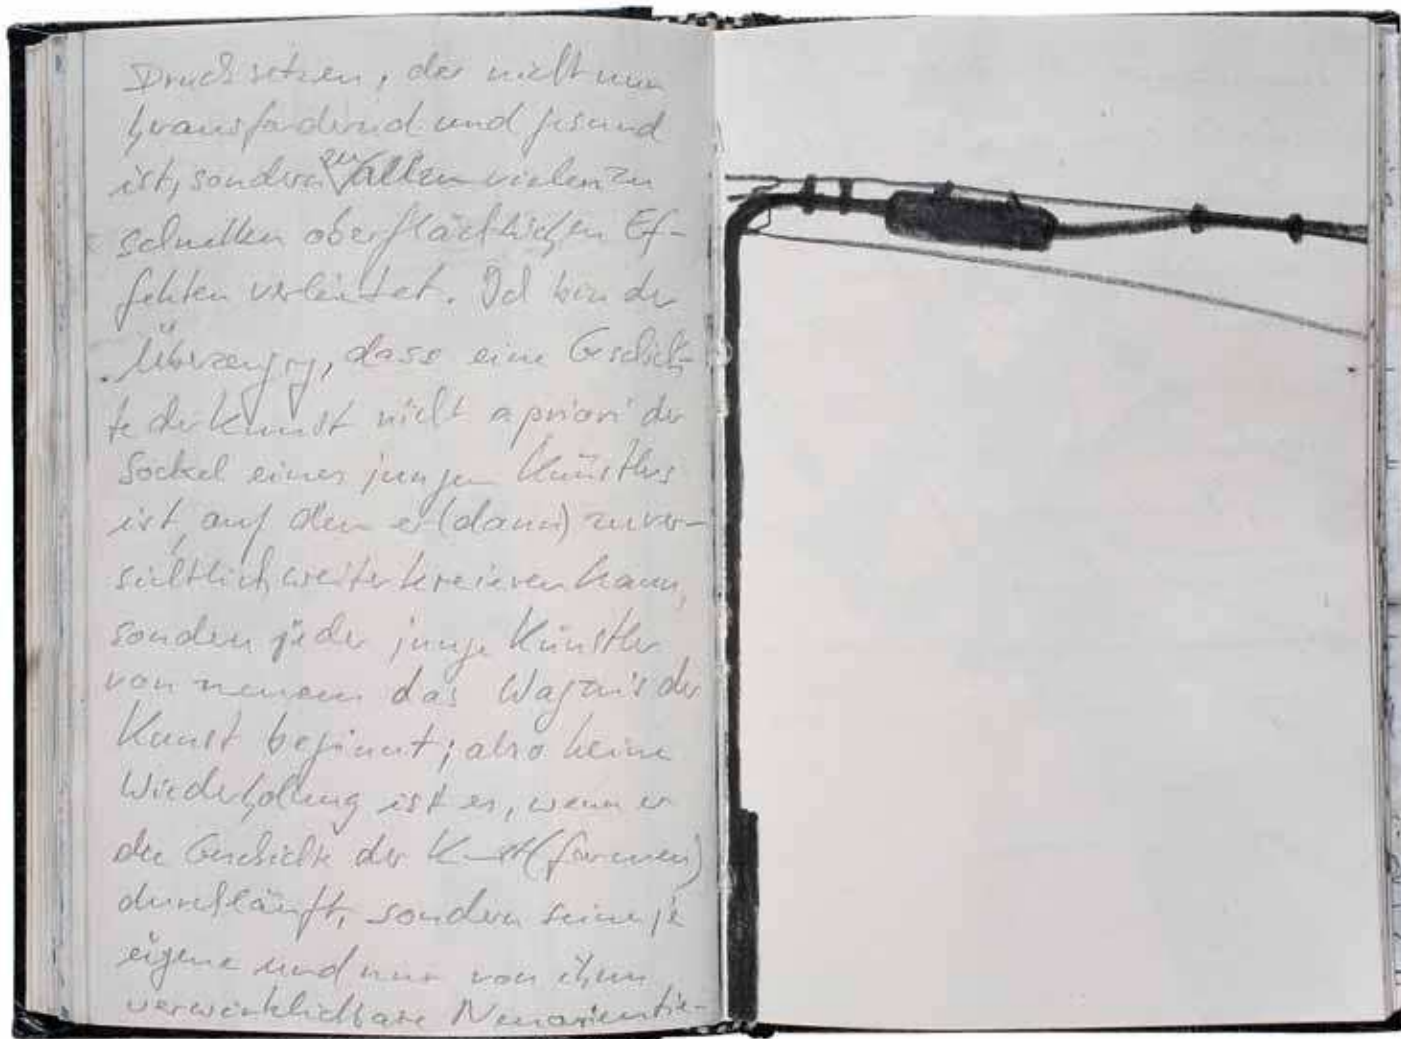 Druck setzen, der nicht nur
herausfordernd und gesund
ist, sondern zu allen vielen zu
schnellen oberflächlichen Ef-
fekten verleitet. Ich bin der
Überzeugng, dass eine Geschich-
te der Kunst nicht a priori der
Sockel eines jungen Künstlers
ist, auf dem er (dann) zuver-
sichtlich weiterkreieren kann,
sondern jeder junge Künstler
von neuem das Wagnis der
Kunst beginnt; also keine
Wiederholung ist es, wenn er
die Geschichte der Kunst(formen)
durchläuft, sondern seine je
eigene und nur von ihm
verwirklichbare Neuorientie-